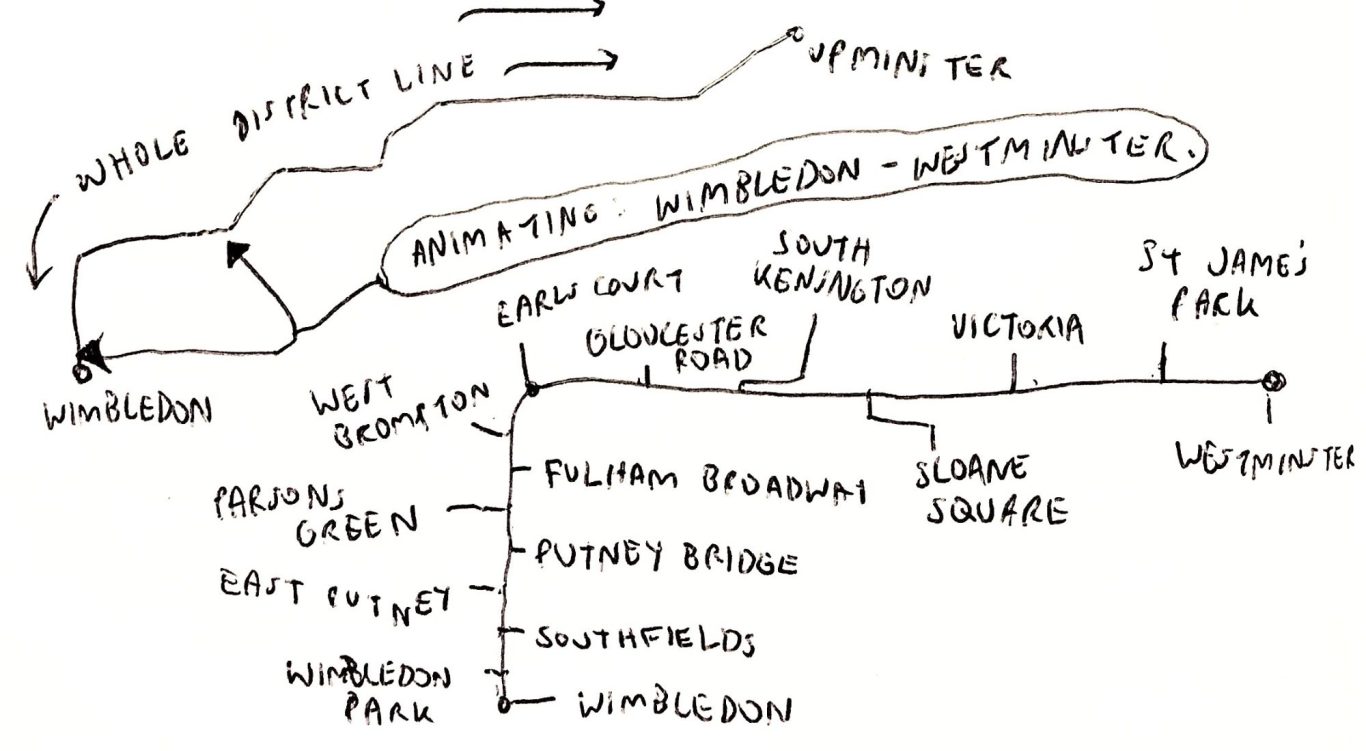 WHOLE DISTRICT LINE
UPMINSTER
ANIMATING: WIMBLEDON - WESTMINSTER.
WIMBLEDON
EARLS COURT
GLOUCESTER
ROAD
SOUTH
KENSINGTON
VICTORIA
ST JAMES
PARK
WESTMINSTER
SLOANE
SQUARE
WEST
BROMPTON
FULHAM BROADWAY
PARSONS
GREEN
PUTNEY BRIDGE
EAST PUTNEY
SOUTHFIELDS
WIMBLEDON
PARK
WIMBLEDON